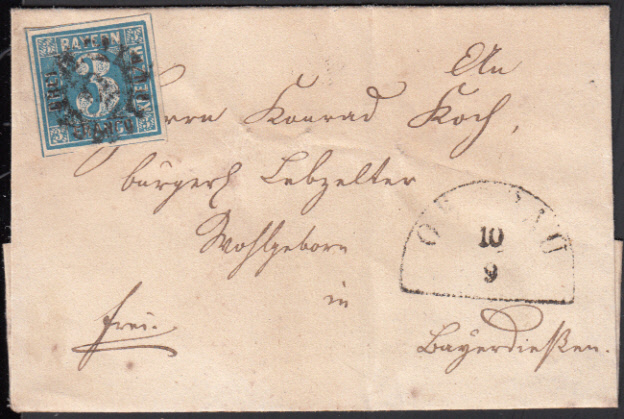 BAYERN
3
An
Herrn Konrad Koch,
bürgerl Lebzelter
Wohlgeborn
10
9
in
frei.
Bayerdießen.